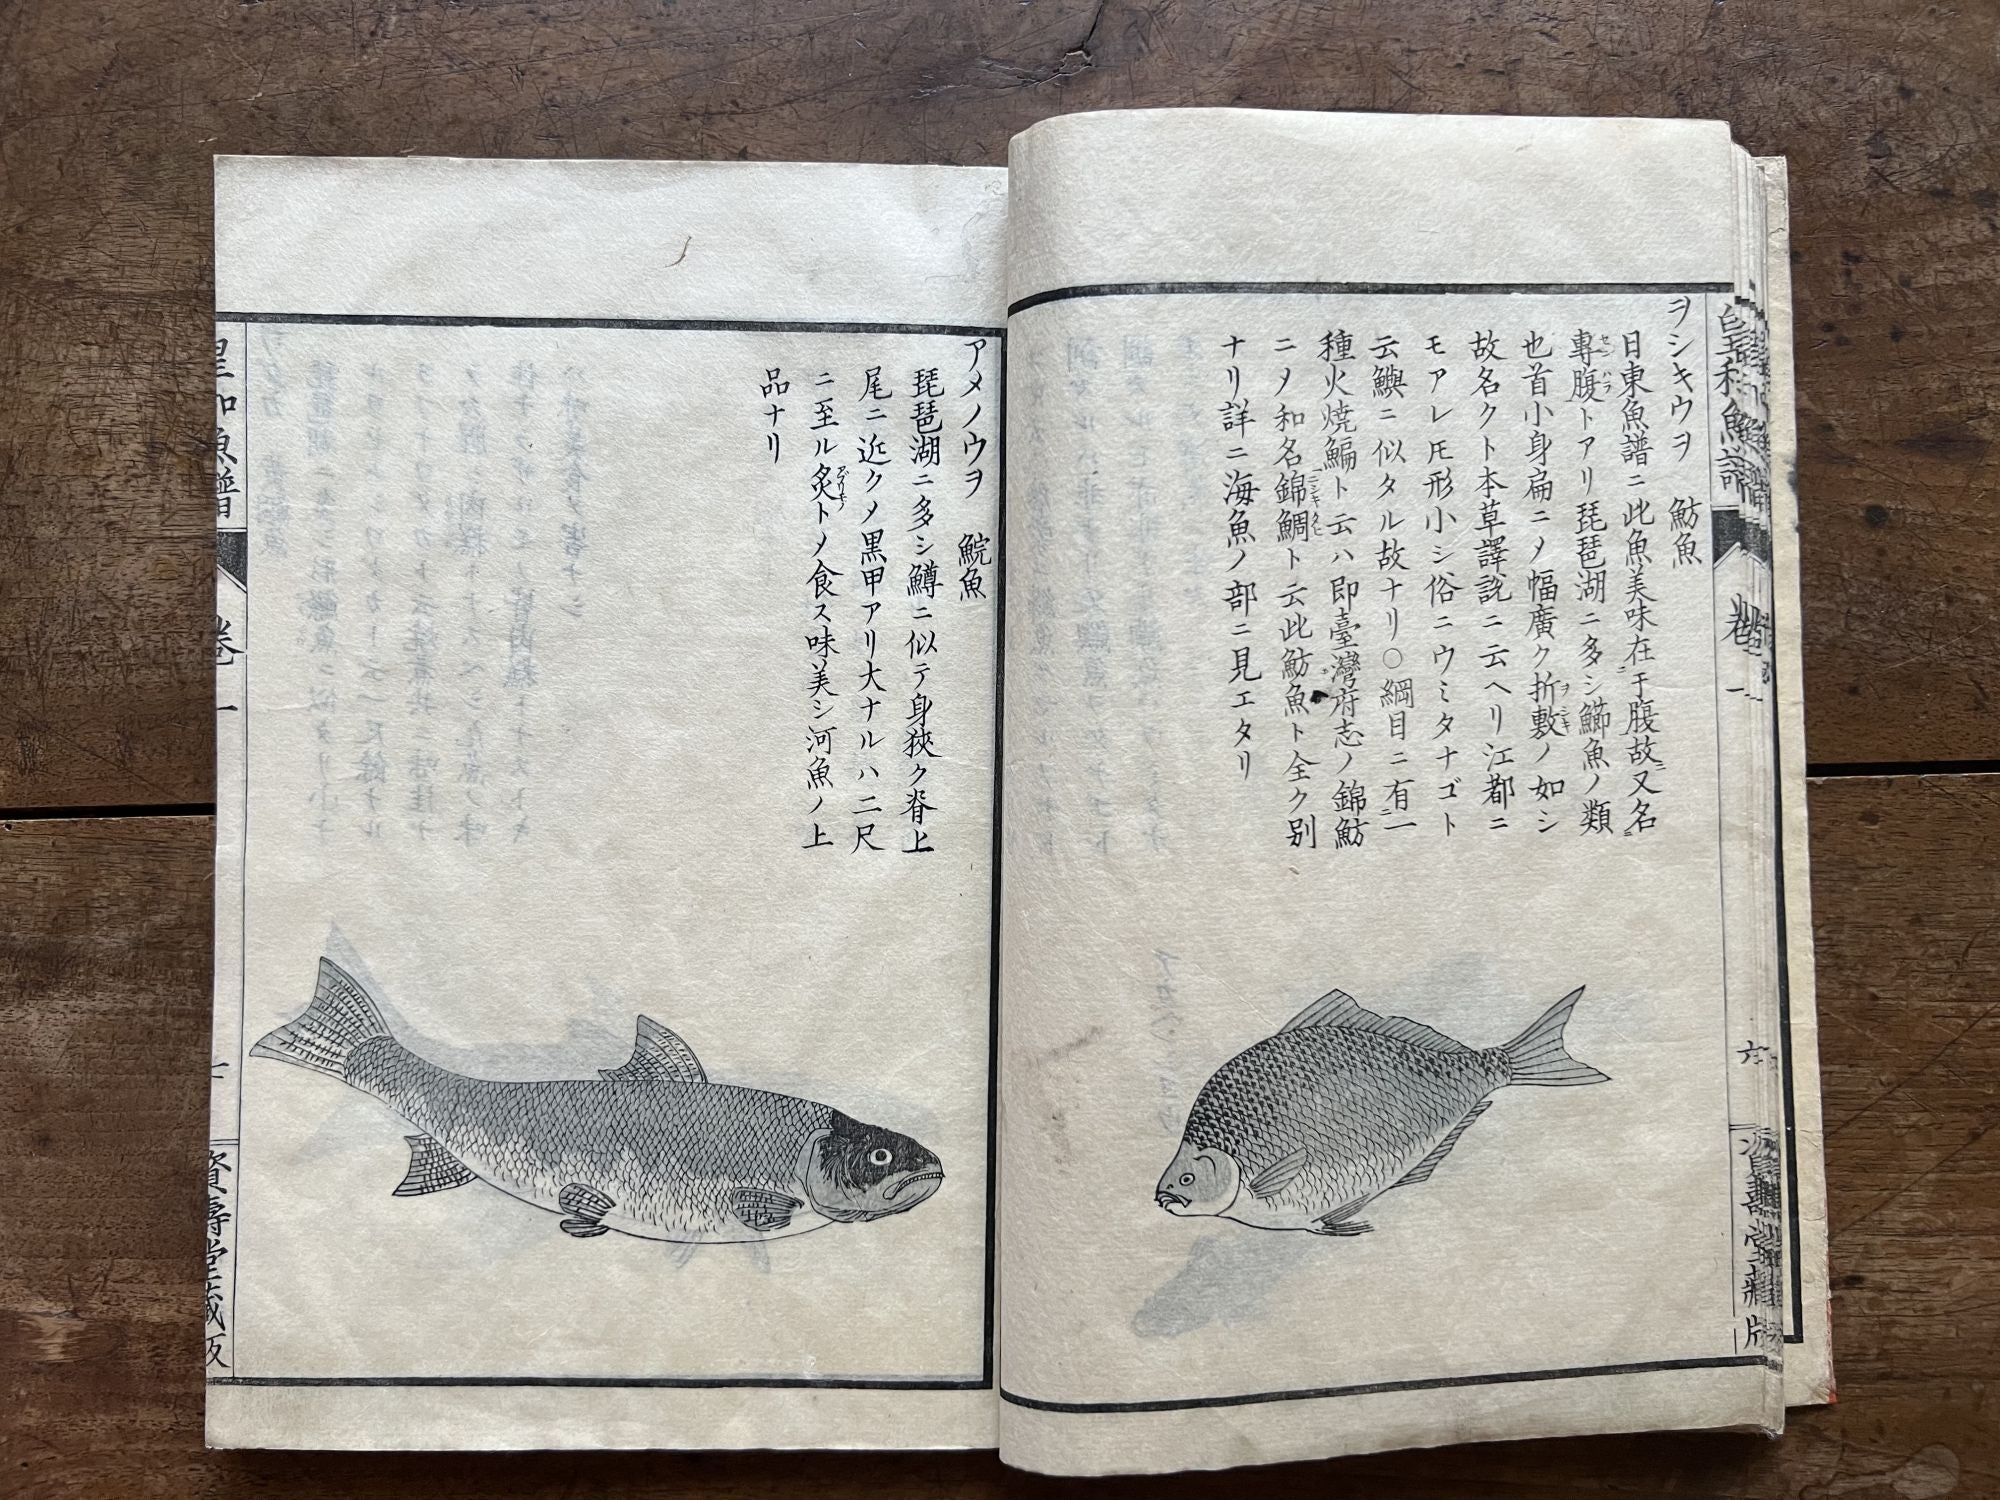 ヲシキウヲ 魴魚
日東魚譜ニ此魚美味在于腹故又名
專腹トアリ琵琶湖ニ多シ鰤魚ノ類
也首小身扁ニメ幅廣ク折敷ノ如シ
故名クト本草譯說ニ云ヘリ江都ニ
モアレ𪜈形小シ俗ニウミタナゴト
云鱮ニ似タル故ナリ○綱目ニ有一
種火燒鯿ト云ハ即臺灣府志ノ錦魴
ニメ和名錦鯛ト云此魴魚ト全ク別
ナリ詳ニ海魚ノ部ニ見エタリ
アメノウヲ 鯇魚
琵琶湖ニ多シ鱒ニ似テ身狹ク脊上
尾ニ近クメ黒甲アリ大ナルハ二尺
ニ至ル炙トメ食ス味美シ河魚ノ上
品ナリ
皇和魚譜 卷一 六
皇和魚譜 卷一 七 資壽堂藏版